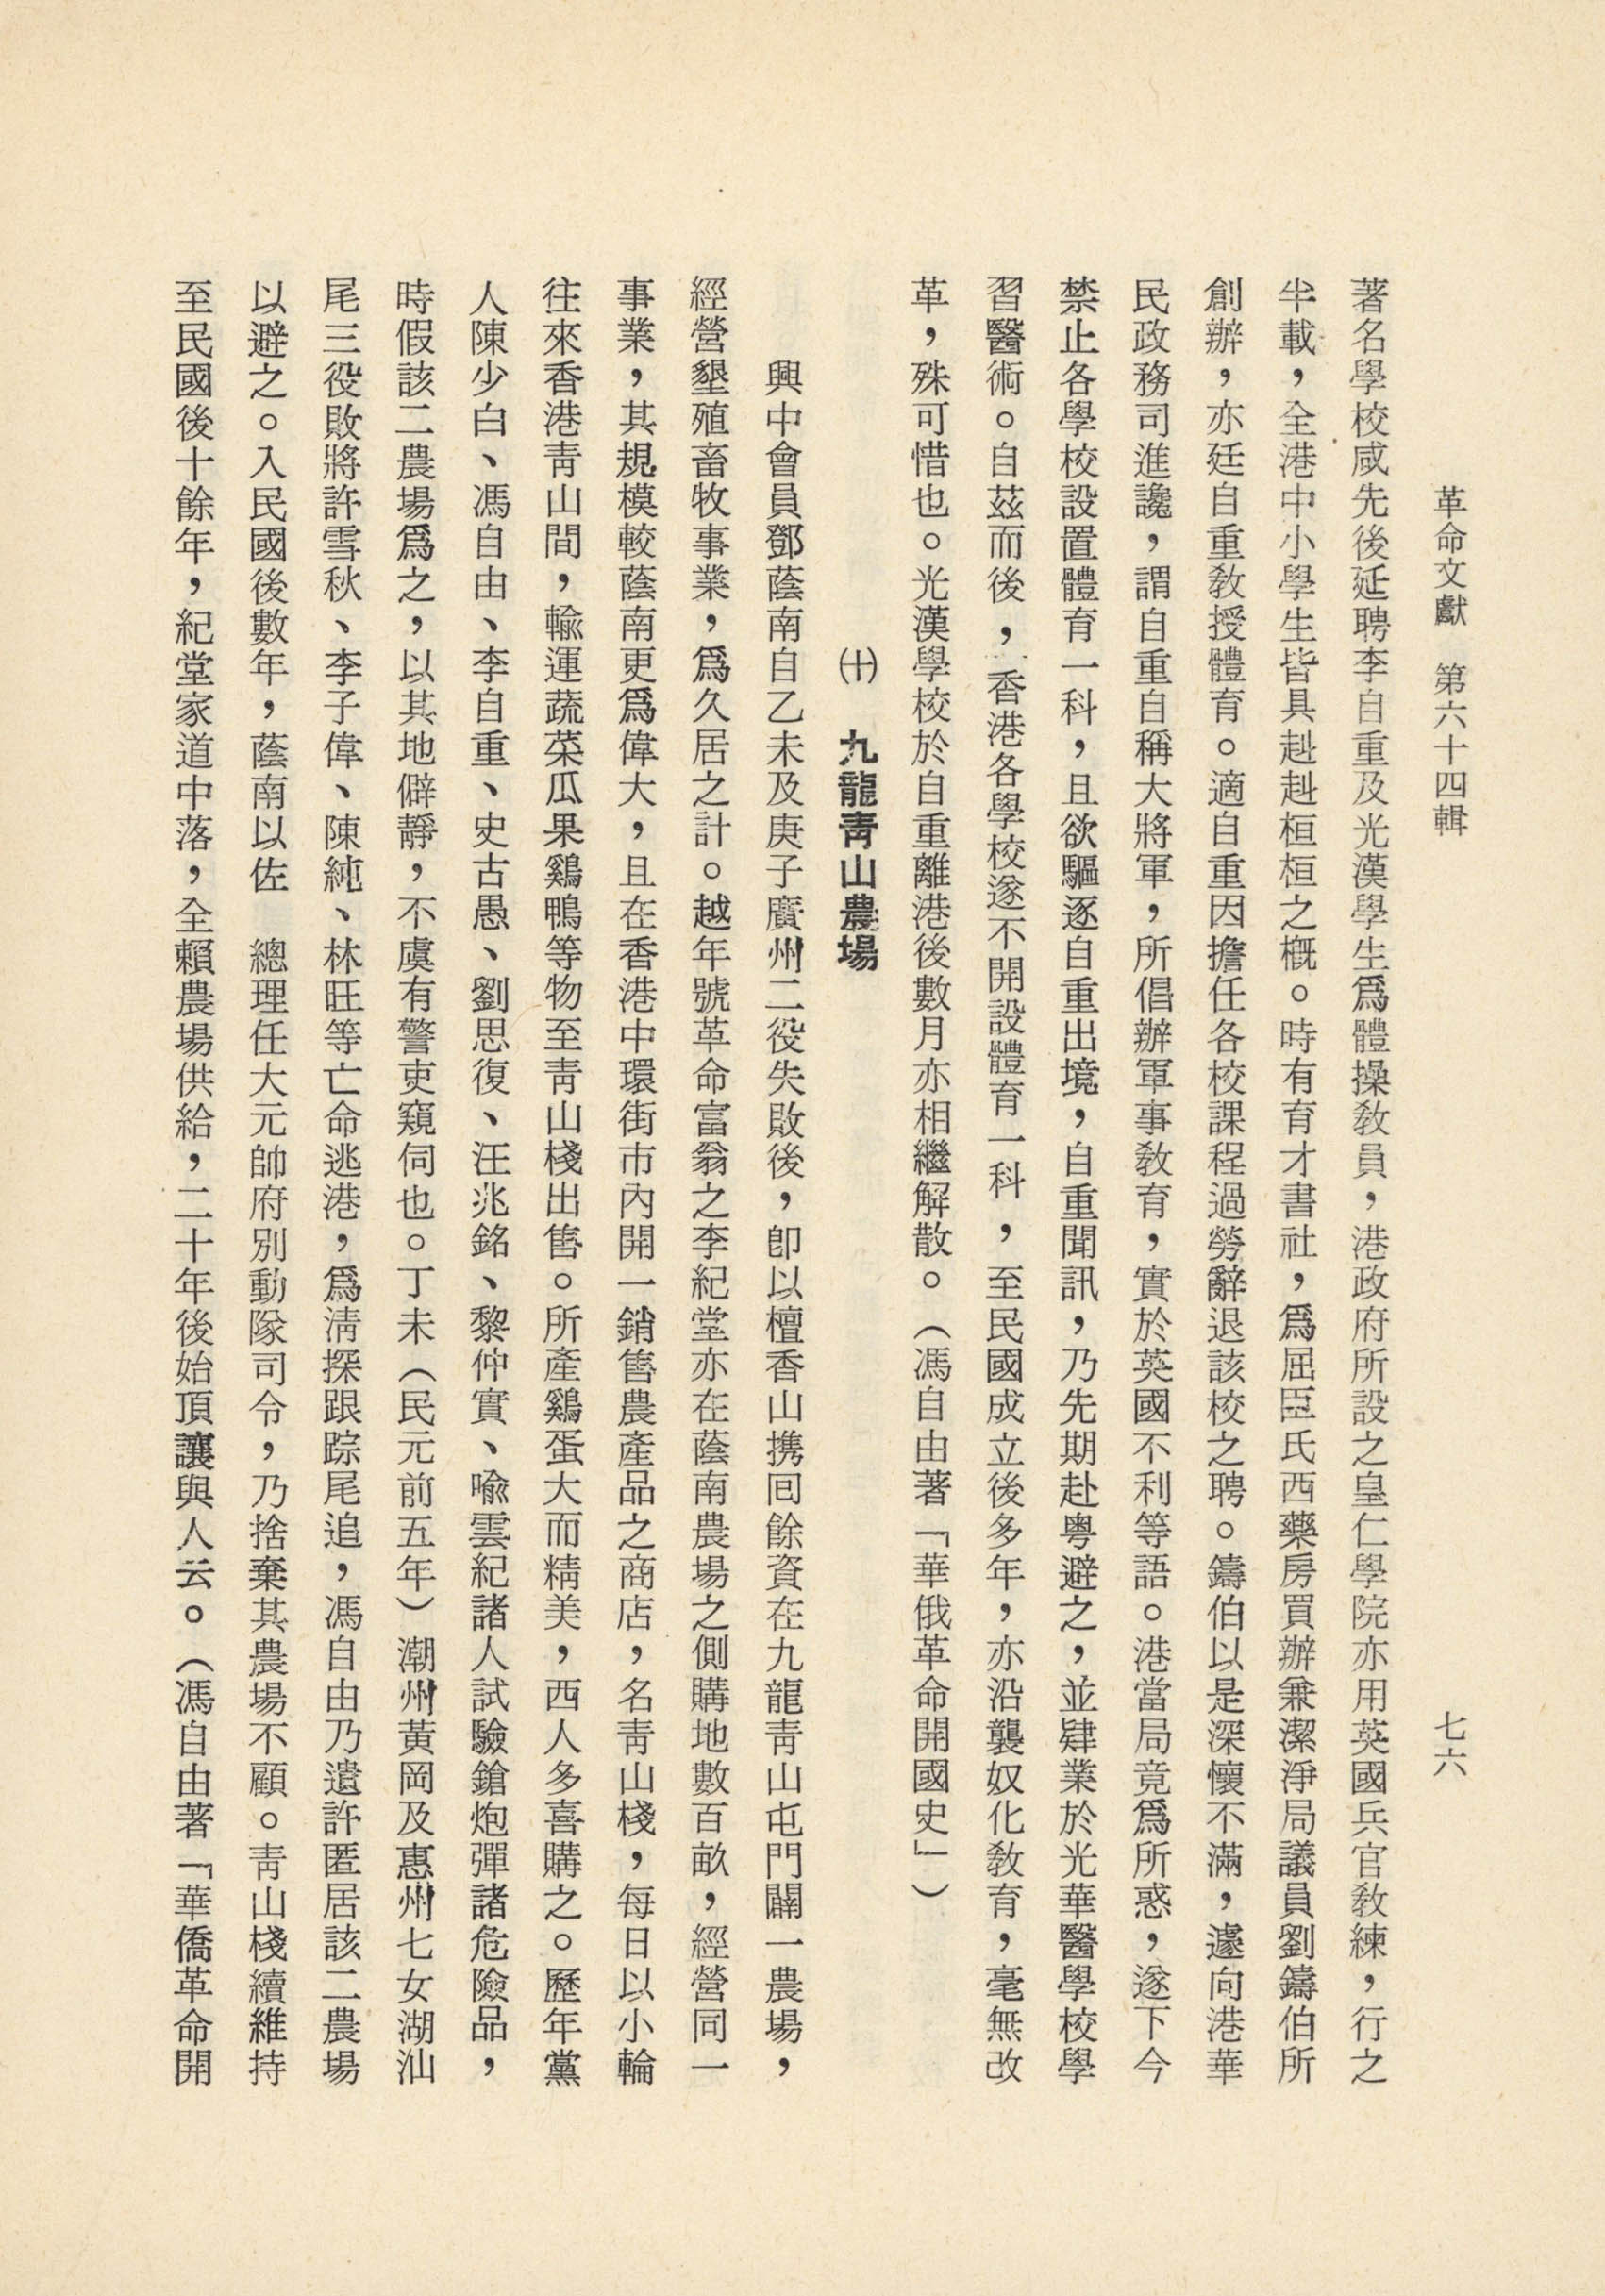 革命文獻　第六十四輯
七六
著名學校咸先後延聘李自重及光漢學生爲體操教員，港政府所設之皇仁學院亦用英國兵官教練，行之
半載，全港中小學生皆具赳赳桓桓之概。時有育才書社，爲屈臣氏西藥房買辦兼潔淨局議員劉鑄伯所
創辦，亦廷自重教授體育。適自重因擔任各校課程過勞辭退該校之聘。鑄伯以是深懷不滿，遽向港華
民政務司進讒，謂自重自稱大將軍，所倡辦軍事教育，實於英國不利等語。港當局竟爲所惑，遂下令
禁止各學校設置體育一科，且欲驅逐自重出境，自重聞訊，乃先期赴粵避之，並肄業於光華醫學校學
習醫術。自茲而後，香港各學校遂不開設體育一科，至民國成立後多年，亦沿襲奴化教育，毫無改
革，殊可惜也。光漢學校於自重離港後數月亦相繼解散。（馮自由著「華俄革命開國史」）
㈩　九龍靑山農場
興中會員鄧蔭南自乙未及庚子廣州二役失敗後，卽以檀香山携囘餘資在九龍靑山屯門闢一農場，
經營墾殖畜牧事業，爲久居之計。越年號革命富翁之李紀堂亦在蔭南農場之側購地數百畝，經營同一
事業，其規模較蔭南更爲偉大，且在香港中環街市內開一銷售農產品之商店，名靑山棧，每日以小輪
往來香港靑山間，輸運蔬菜瓜果鷄鴨等物至靑山棧出售。所產鷄蛋大而精美，西人多喜購之。歷年黨
人陳少白、馮自由、李自重、史古愚、劉思復、汪兆銘、黎仲實、喩雲紀諸人試驗鎗炮彈諸危險品，
時假該二農場爲之，以其地僻靜，不虞有警吏窺伺也。丁未（民元前五年）潮州黃岡及惠州七女湖汕
尾三役敗將許雪秋、李子偉、陳純、林旺等亡命逃港，爲淸探跟踪尾追，馮自由乃遣許匿居該二農場
以避之。入民國後數年，蔭南以佐　總理任大元帥府別動隊司令，乃捨棄其農場不顧。靑山棧續維持
至民國後十餘年，紀堂家道中落，全賴農場供給，二十年後始頂讓與人云。（馮自由著「華僑革命開